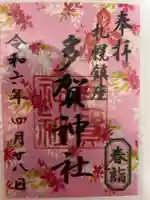 奉拝
札幌鎮座
多賀神社
令和六年四月廿八日
春詣